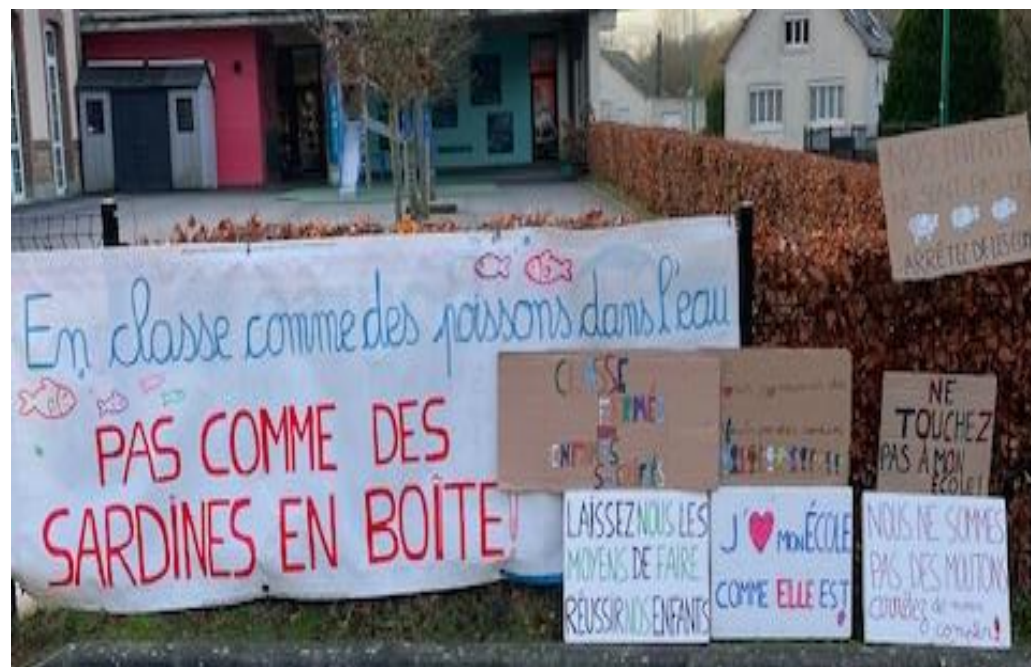 En classe comme des poissons dans l'eau
PAS COMME DES
SARDINES EN BOÎTE!
NOS ENFANTS
NE SONT PAS DE
ARRÊTEZ DE LES
CLASSE
FERMÉE
ENFANTS
SACRIFIÉS
NE
TOUCHEZ
PAS À MON
ÉCOLE!
LAISSEZ NOUS LES
MOYENS DE FAIRE
RÉUSSIR NOS ENFANTS
J'❤ MON ÉCOLE
COMME ELLE EST!
NOUS NE SOMMES
PAS DES MOUTONS
arrêtez de nous
compter!